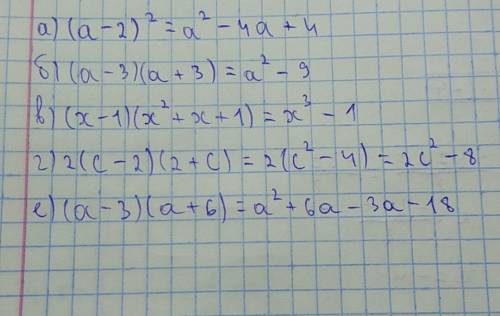 а) (a-2)² = a² - 4a + 4
б) (a-3)(a+3) = a² - 9
в) (x-1)(x²+x+1) = x³ - 1
г) 2(c-2)(2+c) = 2(c²-4) = 2c² - 8
е) (a-3)(a+6) = a² + 6a - 3a - 18